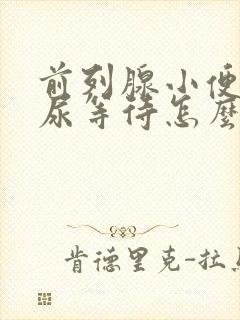 前列腺小便
尿等待怎麼
肯德里克-拉